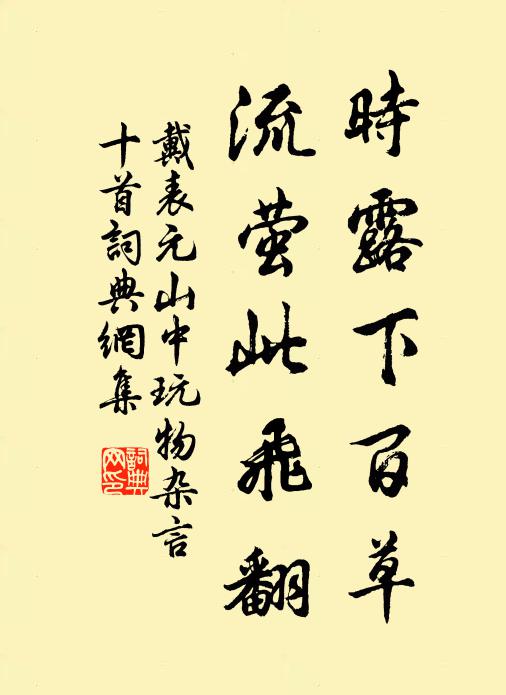 時露下百草
流萤此飛翻
戴表元山中玩物杂言
十首詞典網集
詞典
网印